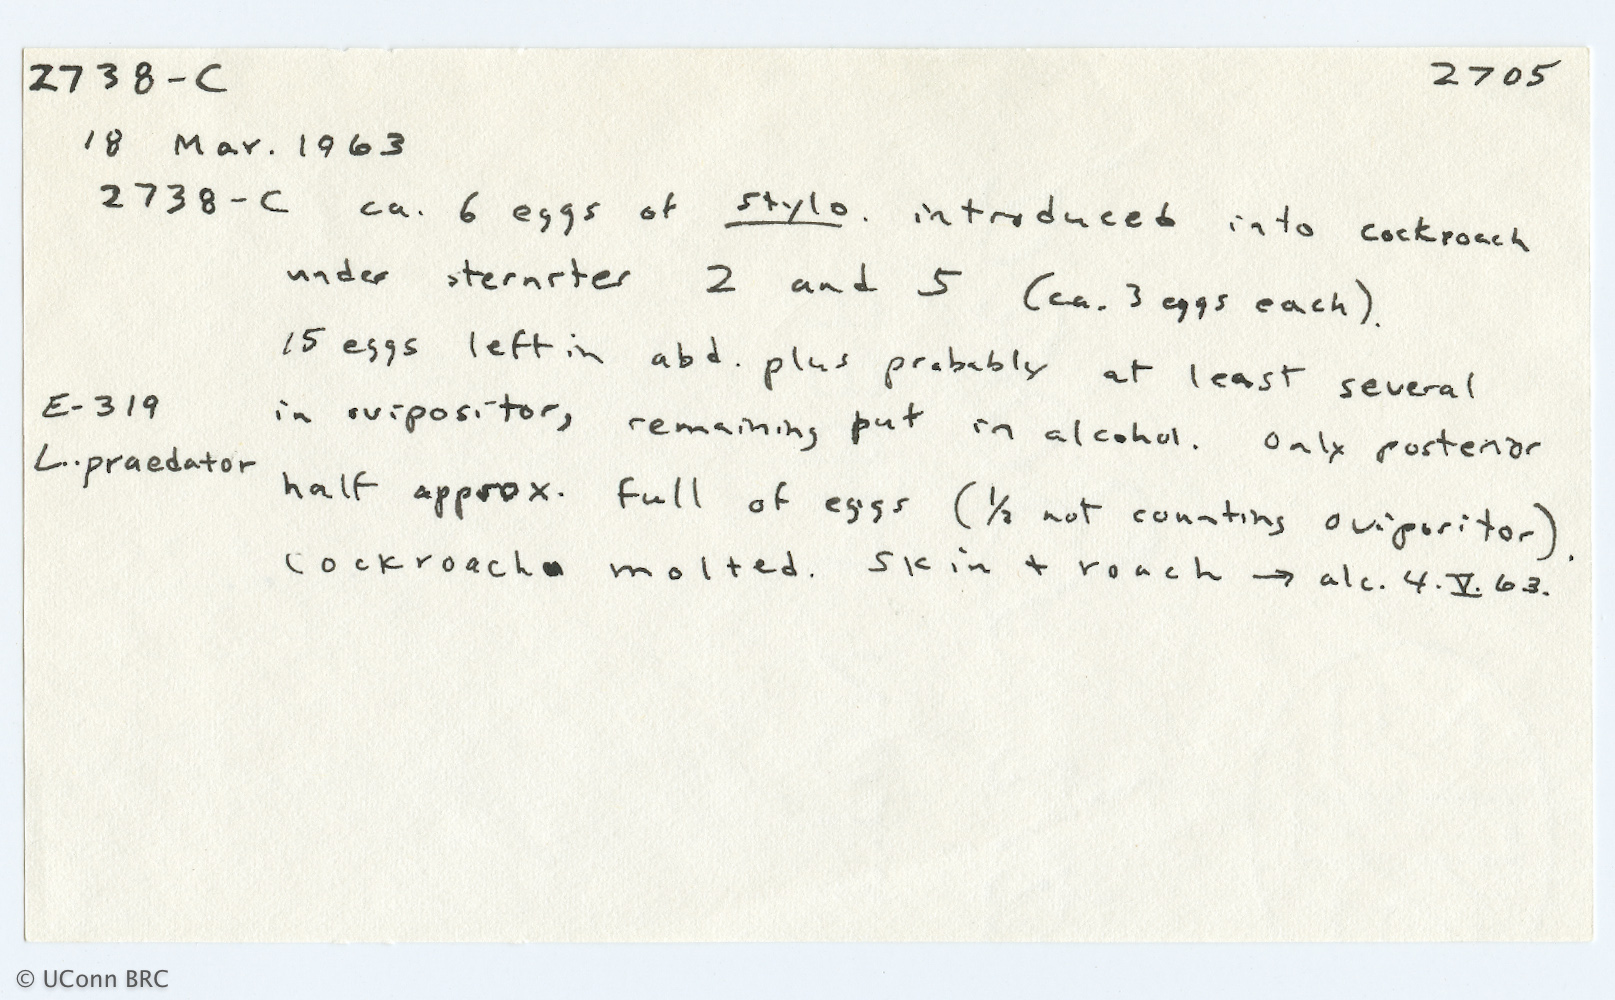 2738-C 2705
18 Mar. 1963
2738-C ca. 6 eggs of stylo. introduced into cockroach
under sternites 2 and 5 (ca. 3 eggs each).
15 eggs left in abd. plus probably at least several
E-319 in ovipositor, remaining put in alcohol. Only posterior
L. praedator half approx. full of eggs (1/2 not counting ovipositor).
Cockroach molted. Skin + roach → alc. 4.V.63.
© UConn BRC